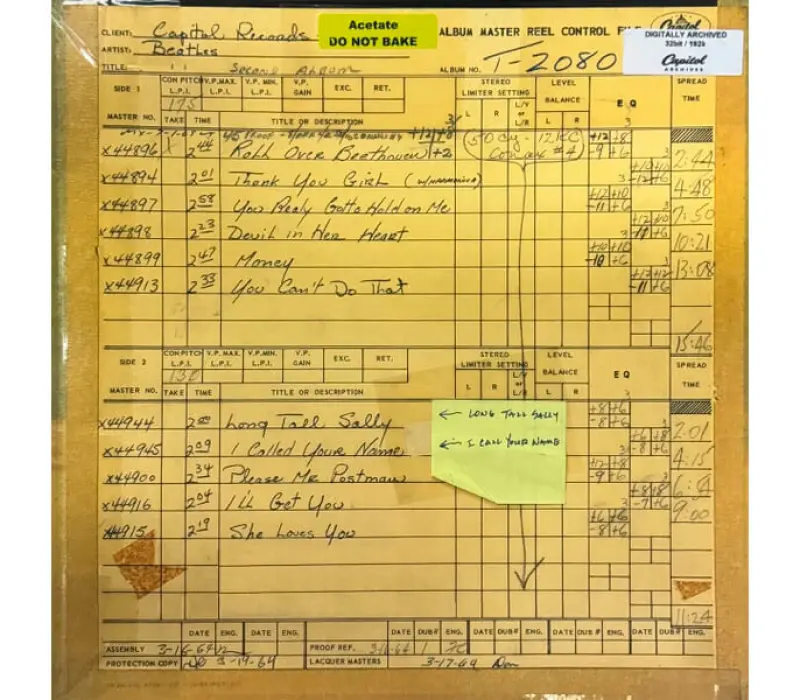 CLIENT: Capitol Records
Acetate
DO NOT BAKE
ALBUM MASTER REEL CONTROL FILE
Capitol
ARTIST: Beatles
DIGITALLY ARCHIVED
32bit / 192k
Capitol
ARCHIVES
TITLE: Second Album
ALBUM NO. T-2080
SIDE 1 CON PITCH L.P.I. V.P. MAX. L.P.I. V.P. MIN. L.P.I. V.P. GAIN EXC. RET. STEREO LIMITER SETTING LEVEL BALANCE EQ SPREAD TIME
175
L R L/V or L/R L R
MASTER NO. TAKE TIME TITLE OR DESCRIPTION
X44896 2 44 Roll Over Beethoven +2 50 cy - 12KC -9 +6 2:44
X44894 2 01 Thank You Girl (w/harmonica) -12 +6 4:48
X44897 2 58 You Realy Gotta Hold on Me -11 +6 7:50
X44898 2 23 Devil in Her Heart -11 +6 10:21
X44899 2 47 Money -10 +6 13:08
X44913 2 33 You Can't Do That -11 +6
15:46
SIDE 2 CON PITCH L.P.I. V.P. MAX. L.P.I. V.P. MIN. L.P.I. V.P. GAIN EXC. RET. STEREO LIMITER SETTING LEVEL BALANCE EQ SPREAD TIME
130
L R L/V or L/R L R
MASTER NO. TAKE TIME TITLE OR DESCRIPTION
X44944 2 00 Long Tall Sally ← LONG TALL SALLY +8 +6 -8 +6 2:01
X44945 2 09 I Called Your Name ← I CALL YOUR NAME +6 +8 -8 +6 4:15
X44900 2 34 Please Mr Postman +12 +8 -9 +6 6:54
X44916 2 04 I'll Get You +8 +8 -7 +6 9:00
X44915 2 19 She Loves You +6 +6 -8 +6
11:24
DATE ENG. DATE ENG. DATE DUB# ENG. DATE DUB# ENG. DATE DUB# ENG. DATE DUB# ENG.
ASSEMBLY 3-16-64 PROOF REF. 3-16-64 1
PROTECTION COPY 3-19-64 LACQUER MASTERS 3-17-64 Don